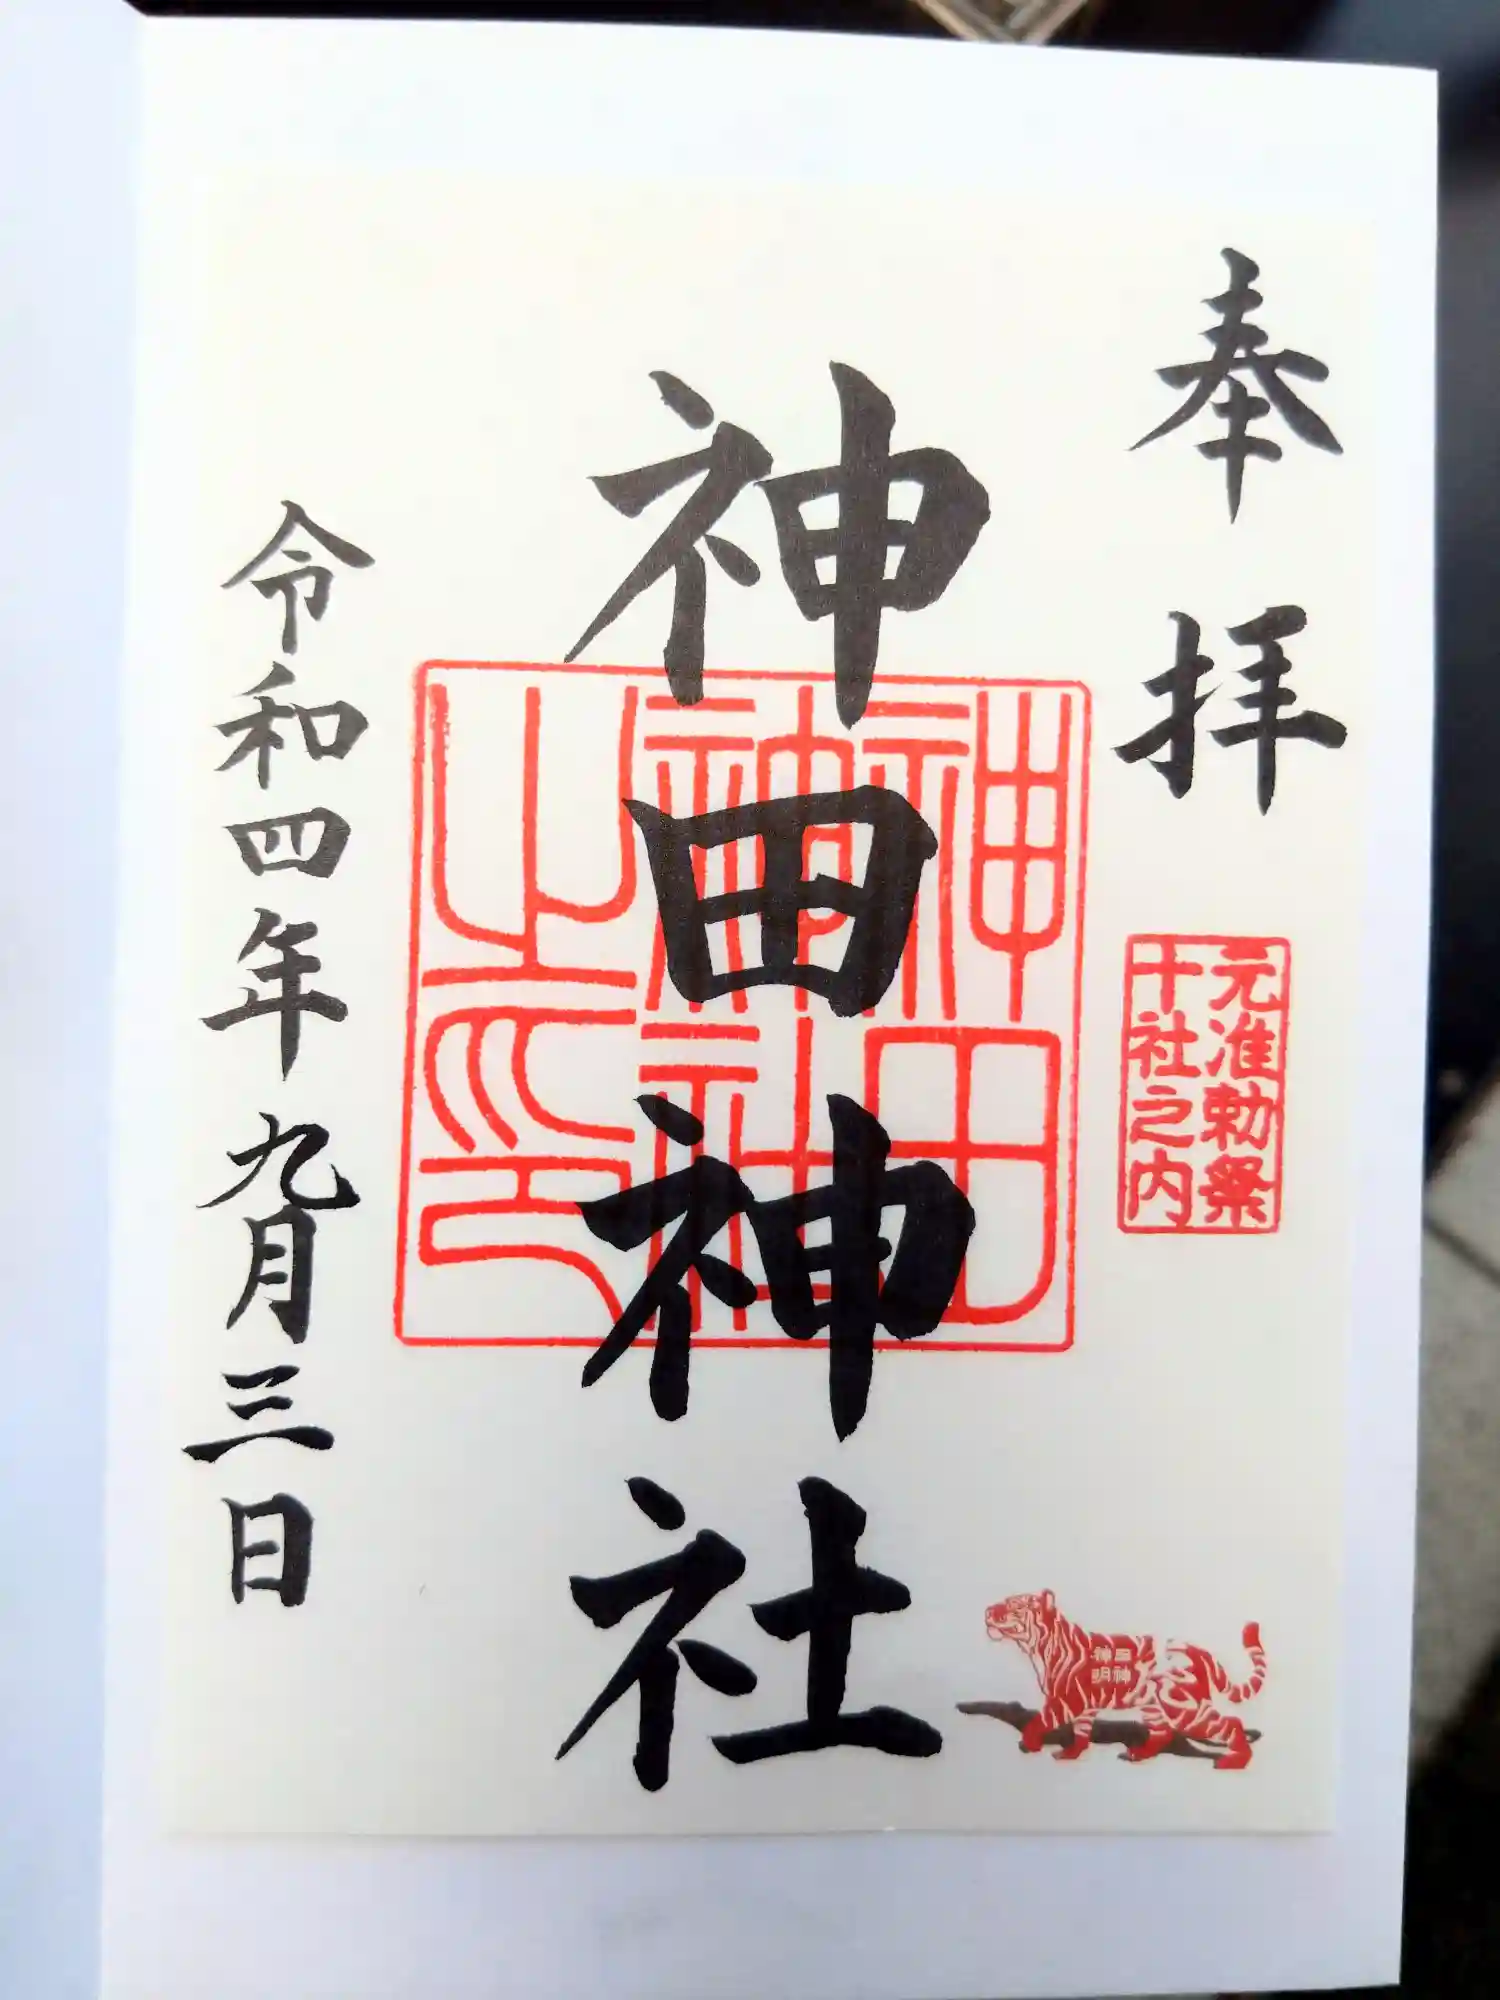 奉拝
元准勅祭
十社之内
神田神社
神田
神社
之印
令和四年九月三日